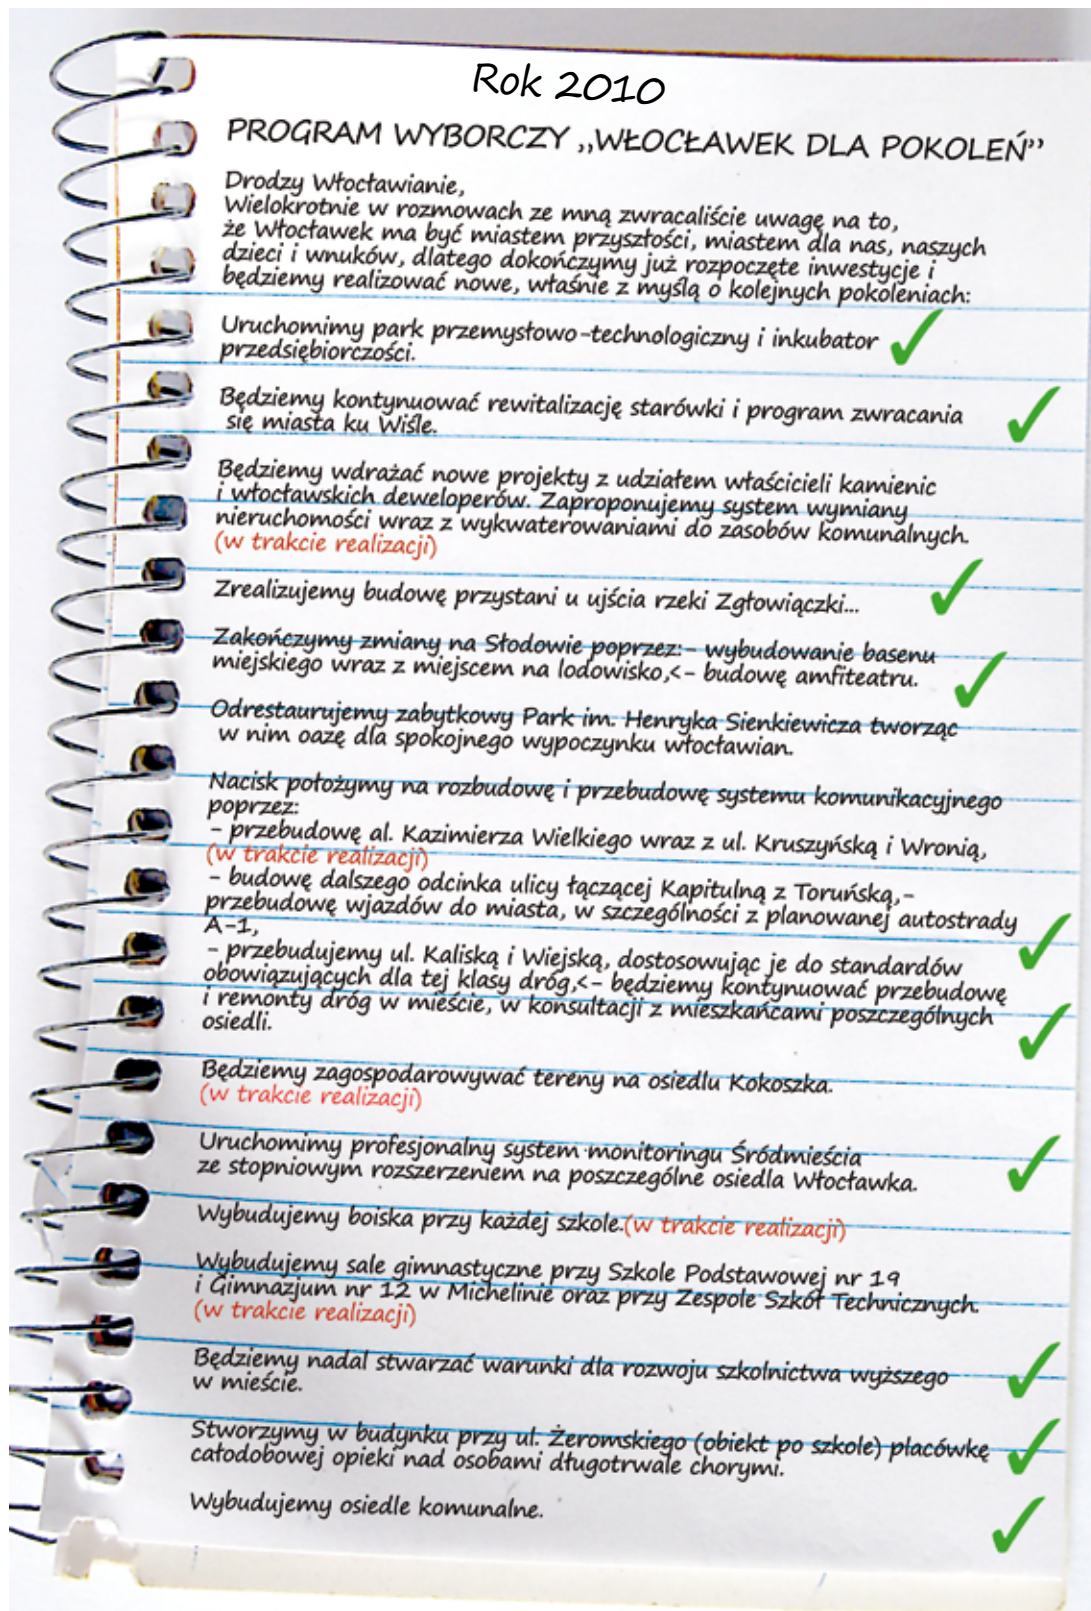 Rok 2010
PROGRAM WYBORCZY „WŁOCŁAWEK DLA POKOLEŃ”
Drodzy Włocławianie,
Wielokrotnie w rozmowach ze mną zwracaliście uwagę na to,
że Włocławek ma być miastem przyszłości, miastem dla nas, naszych
dzieci i wnuków, dlatego dokończymy już rozpoczęte inwestycje i
będziemy realizować nowe, właśnie z myślą o kolejnych pokoleniach:
Uruchomimy park przemysłowo-technologiczny i inkubator
przedsiębiorczości.
Będziemy kontynuować rewitalizację starówki i program zwracania
się miasta ku Wiśle.
Będziemy wdrażać nowe projekty z udziałem właścicieli kamienic
i włocławskich deweloperów. Zaproponujemy system wymiany
nieruchomości wraz z wykwaterowaniami do zasobów komunalnych.
(w trakcie realizacji)
Zrealizujemy budowę przystani u ujścia rzeki Zgłowiączki...
Zakończymy zmiany na Słodowie poprzez:- wybudowanie basenu
miejskiego wraz z miejscem na lodowisko,<- budowę amfiteatru.
Odrestaurujemy zabytkowy Park im. Henryka Sienkiewicza tworząc
w nim oazę dla spokojnego wypoczynku włocławian.
Nacisk położymy na rozbudowę i przebudowę systemu komunikacyjnego
poprzez:
- przebudowę al. Kazimierza Wielkiego wraz z ul. Kruszyńską i Wronią,
(w trakcie realizacji)
- budowę dalszego odcinka ulicy łączącej Kapitulną z Toruńską,-
przebudowę wjazdów do miasta, w szczególności z planowanej autostrady
A-1,
- przebudujemy ul. Kaliską i Wiejską, dostosowując je do standardów
obowiązujących dla tej klasy dróg,<- będziemy kontynuować przebudowę
i remonty dróg w mieście, w konsultacji z mieszkańcami poszczególnych
osiedli.
Będziemy zagospodarowywać tereny na osiedlu Kokoszka.
(w trakcie realizacji)
Uruchomimy profesjonalny system monitoringu Śródmieścia
ze stopniowym rozszerzeniem na poszczególne osiedla Włocławka.
Wybudujemy boiska przy każdej szkole.(w trakcie realizacji)
Wybudujemy sale gimnastyczne przy Szkole Podstawowej nr 19
i Gimnazjum nr 12 w Michelinie oraz przy Zespole Szkół Technicznych.
(w trakcie realizacji)
Będziemy nadal stwarzać warunki dla rozwoju szkolnictwa wyższego
w mieście.
Stworzymy w budynku przy ul. Żeromskiego (obiekt po szkole) placówkę
całodobowej opieki nad osobami długotrwale chorymi.
Wybudujemy osiedle komunalne.